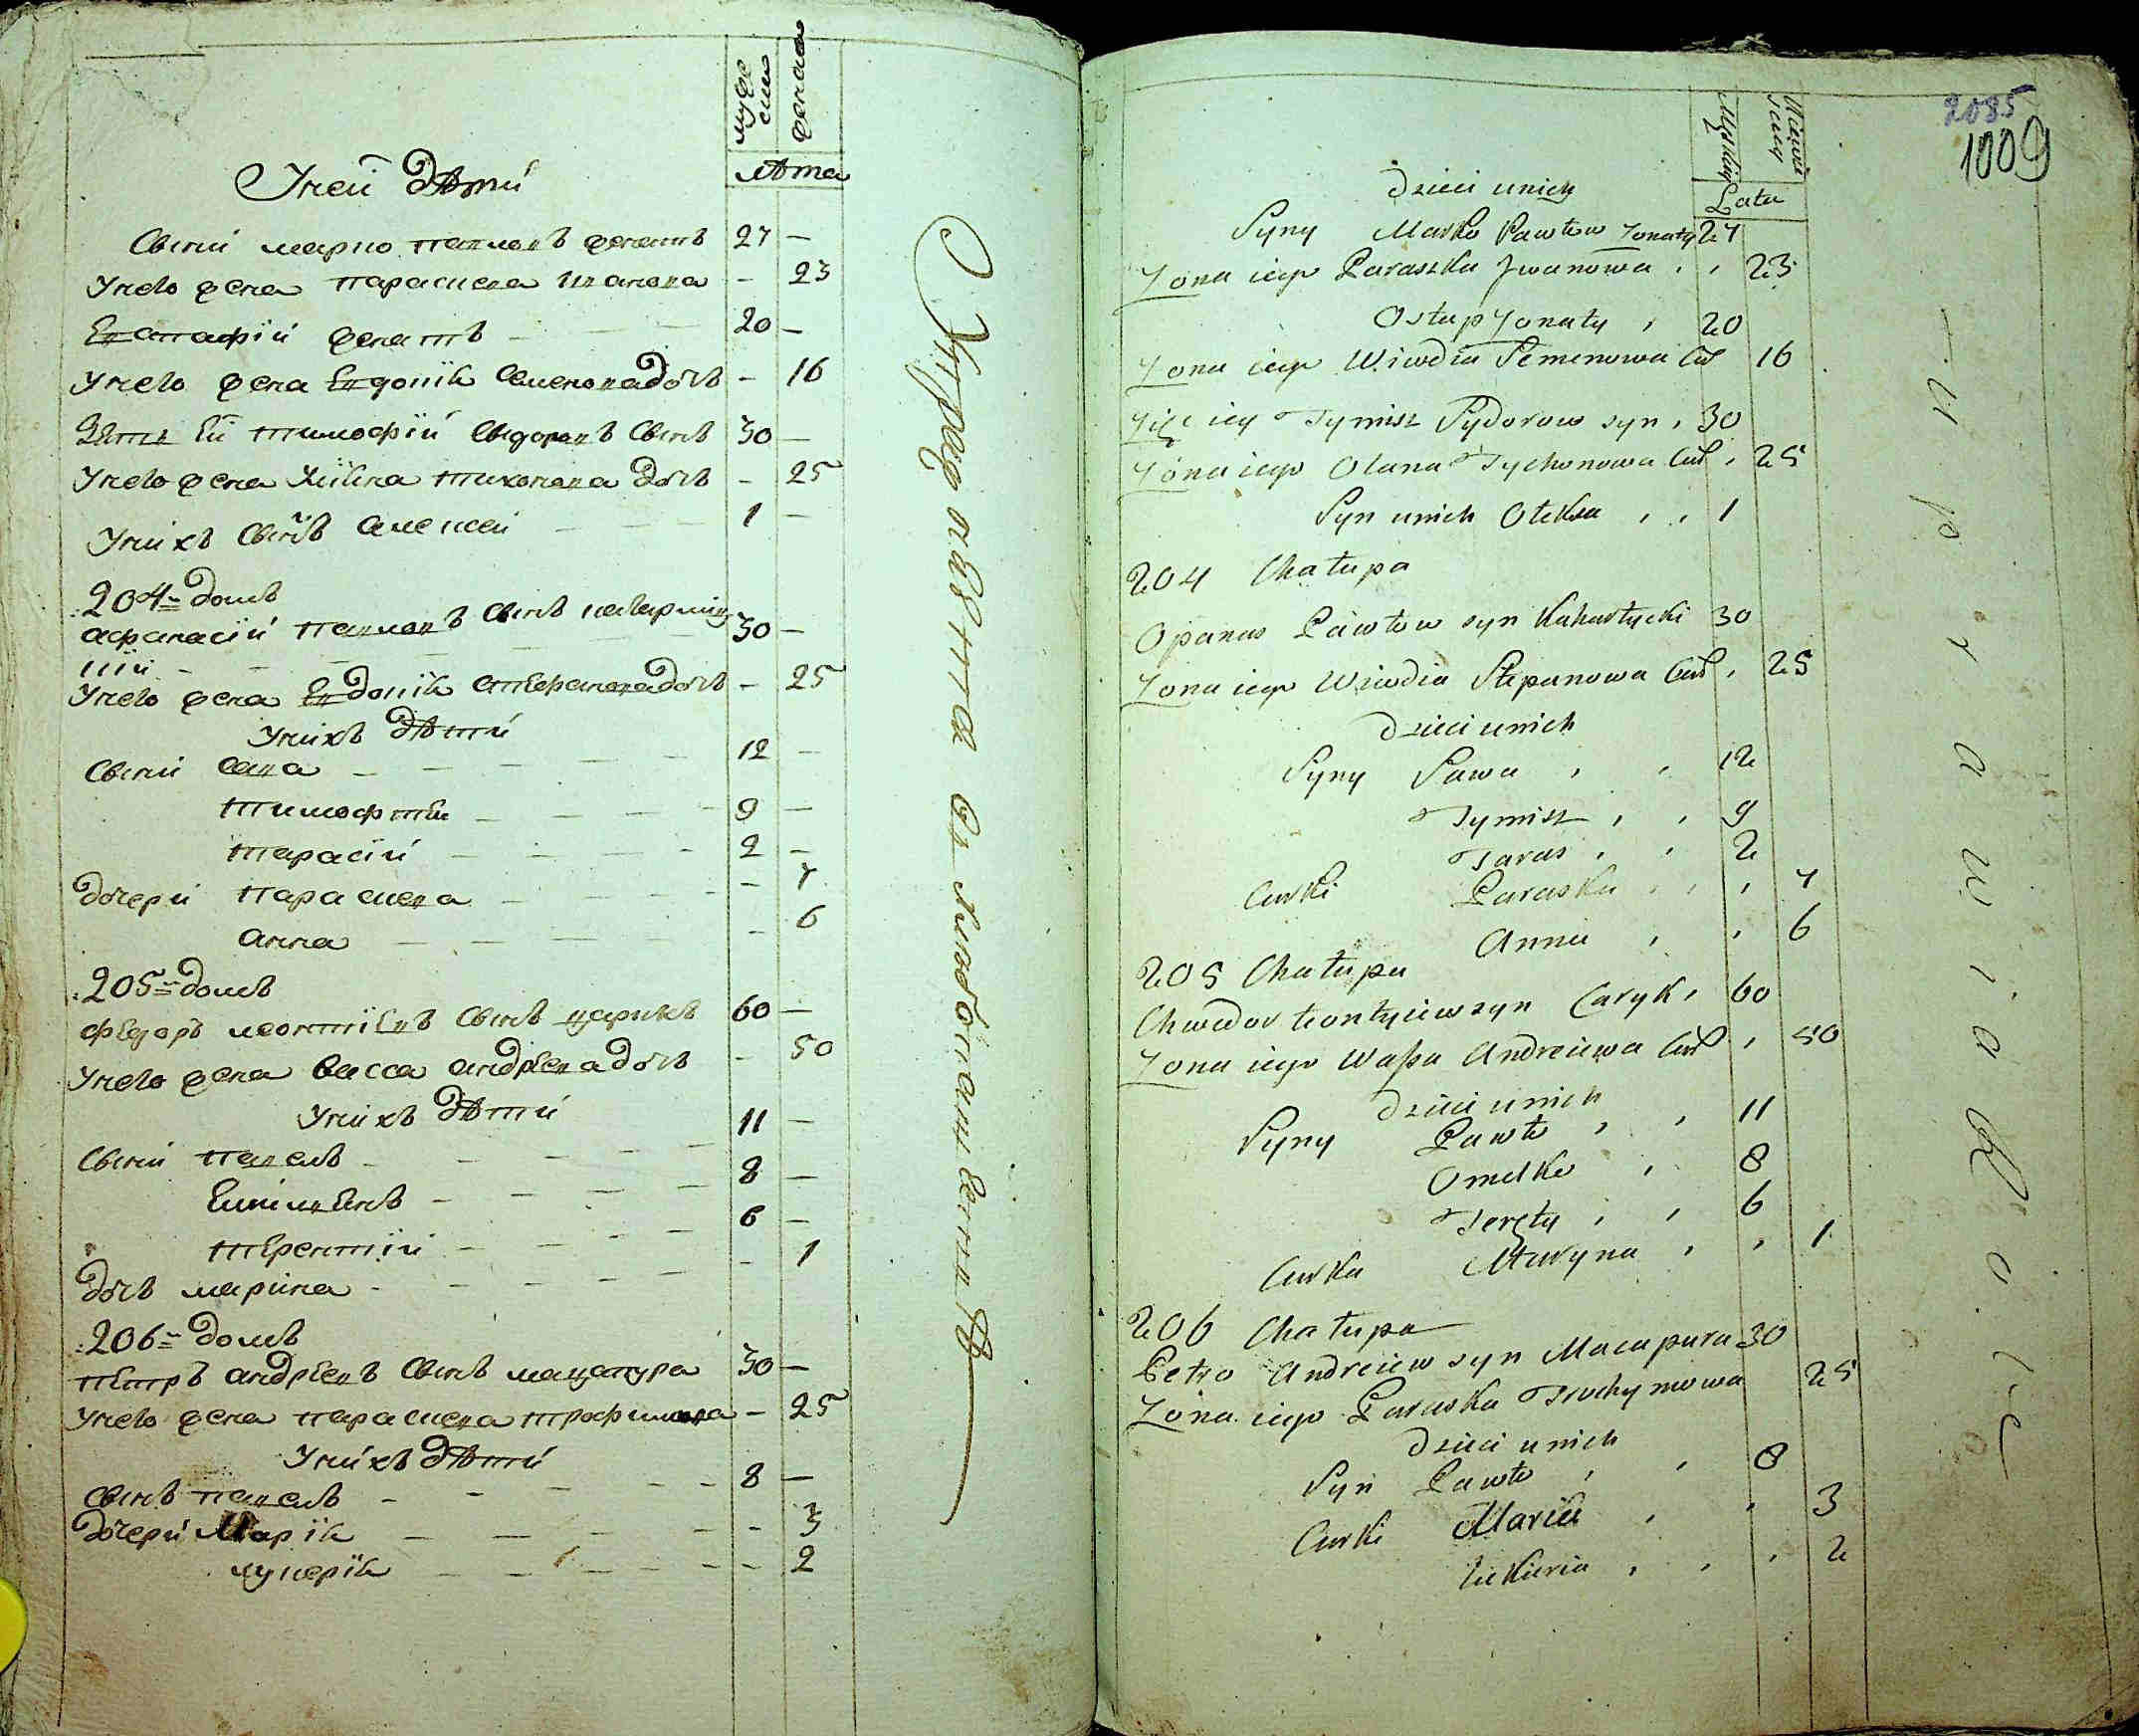 муже
ски
женска
лѣта
У ней дѣти
Сыни марко павловъ женатъ 27 —
У него жена параскева иванова — 23
Евстафiй женатъ — 20 —
У него жена Евдокiя Семенова дочь — 16
Зять Ей тимофiй Сидоровъ Сынъ 30 —
У него жена Улiяна тихонова дочь — 25
У нихъ Сынъ алексей — 1 —
204 домъ
афанасiй павловъ Сынъ кагарлиц 30 —
кiй
У него жена Евдокiя стефанова дочь — 25
У нихъ дѣти
Сыни Сава — 12 —
тимофтей — 9 —
тарасiй — 2 —
дочери параскева — 7
анна — 6
205 домъ
федоръ леонтiевъ Сынъ царикъ 60 —
У него жена васса андреева дочь — 50
У нихъ дѣти
Сыни павелъ — 11 —
Емiлиенъ — 8 —
терентiй — 6 —
дочь марина — 1
206 домъ
петръ андреевъ Сынъ мацапура 30 —
У него жена параскева трофимова — 25
У нихъ дѣти
Сынъ павелъ — 8 —
дочери Марiя — 3
лукерiя — 2
2085
1009
Męskiey
Żeńskiey
Lata
Dzieci u nich
Syny Marko Pawłow Żonaty 27
Żona iego Paraszka Iwanowa 23
Ostap Żonaty 20
Żona iego Wiwdia Semenowa Cur 16
Zięć iey Tymisz Sydorow syn 30
Żona iego Olana Tychonowa Cur 25
Syn u nich Oleksa 1
204 Chałupa
Opanas Pawłow syn Kaharłycki 30
Żona iego Wiwdia Stepanowa Cur 25
Dzieci u nich
Syny Sawa 12
Tymisz 9
Taras 2
Curki Paraska 7
Anna 6
205 Chałupa
Chwedor Leontyiew syn Caryk 60
Żona iego Wassa Andreiewa Cur 50
Dzieci u nich
Syny Pawło 11
Omelko 8
Teręty 6
Curka Maryna 1
206 Chałupa
Petro Andreiew syn Macapura 30
Żona iego Paraska Trochymowa 25
Dzieci u nich
Syn Pawło 8
Curki Maria 3
Łukieria 2